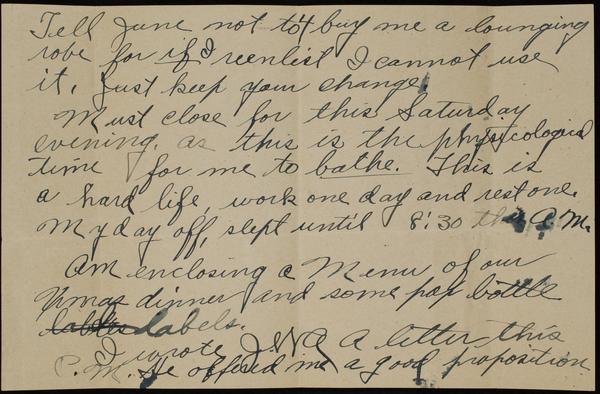 Tell June not to buy me a lounging
robe for if I reenlist I cannot use
it, just keep your change.
Must close for this Saturday
evening, as this is the physycological
time for me to bathe. This is
a hard life, work one day and rest one.
My day off, slept until 8:30 this A.M.
Am enclosing a Menu of our
Xmas dinner and some pop bottle
labels.
I wrote a letter this
P.M. He offered me a good proposition